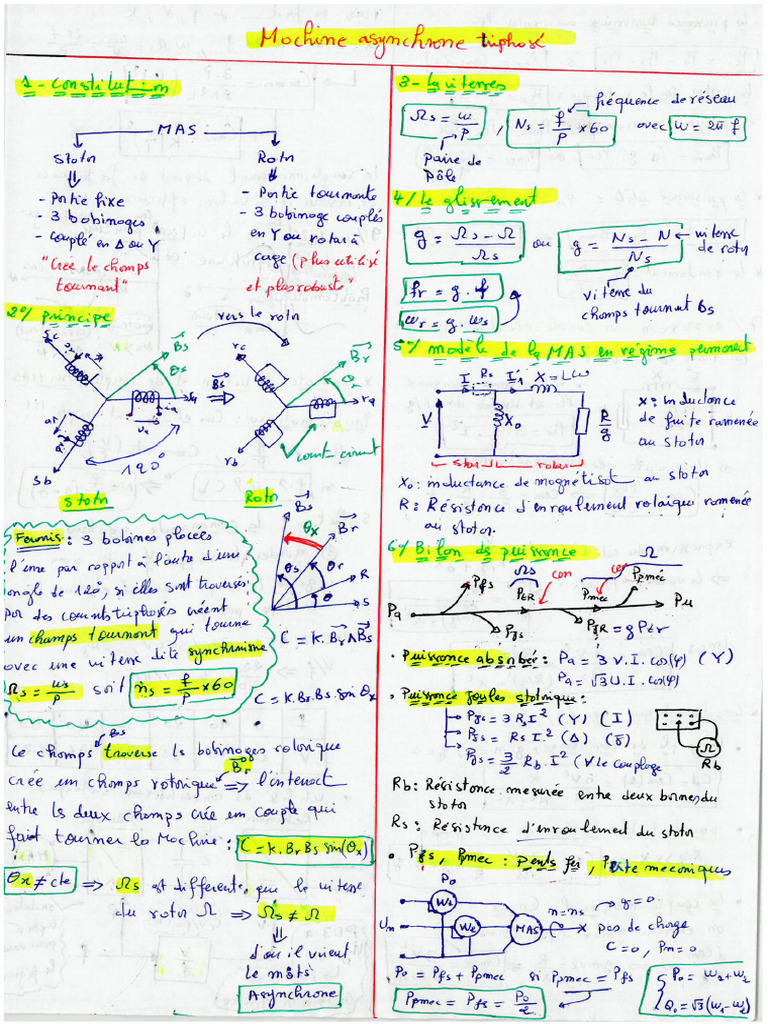 Machine asynchrone triphasé
1 - Constitution
MAS
Stator
Rotor
- Partie fixe
- 3 bobinages
- Couplé en Δ ou Y
"Crée le champs
tournant"
- Partie tournante
- 3 bobinage couplés
en Y ou rotor à
cage (plus utilisé
et plus robuste"
2°/ principe
vers le rotor
Sc
Bs
θs
Sb
120°
Bs
⇒
rc
Br
ra
rb
court-circuit
Stator
Rotor
Bs
θx
Br
θs
θr
R
θ
S
C = K. Br ∧ Bs
C = K. Br. Bs. Sin θx
Ferraris : 3 bobines placées
l'une par rapport à l'autre d'une
angle de 120°, si elles sont traversés
Par des courants triphasés créent
un champs tournant qui tourne
avec une vitesse dite synchronisme
Ωs = ws/P soit ns = f/P x 60
Bs
Le champs traverse ls bobinages rotorique
crée un champs rotorique Br ⇒ l'interact
entre ls deux champs crée un couple qui
fait tourner la Machine : C = K. Br Bs sin(θx)
θx ≠ cte ⇒ Ωs est différente que le vitesse
du rotor Ω ⇒ Ωs ≠ Ω
d'où il vient
le môts
Asynchrone
3 - ls vitesses
Ωs = w/P , Ns = f/P x 60 avec w = 2π f
fréquence de réseau
paire de
Pôle
4/ le glissement
g = Ωs - Ω / Ωs ou g = Ns - N / Ns
vitesse
de rotor
fr = g . f
wr = g . ws
vitesse du
champs tournant Bs
5°/ modèle de la MAS en régime permanent
I Rs I'1 X = Lω
V
X0
R/g
Stator
rotor
X : inductance
de fuite ramenée
au stator
X0 : inductance de magnétisat au stator
R : Résistance d'enroulement rotorique ramenée
au stator.
6°/ Bilan ds puissance
Pa
Pfs
Ωs
PtR
con
Pmec
con
Ω
Ppméc
Pu
Pjs
PjR = g Ptr
• Puissance absorbée : Pa = 3 V. I. cos(φ) (Y)
Pa = √3 U. I. cos(φ)
• Puissance joules statorique :
Pjs = 3 Rs I² (Y) (I)
Pjs = Rs I². (Δ) (J)
Pjs = 3/2 Rb. I² ∀ le couplage
Ω
Rb
Rb : Résistance mesurée entre deux bornes du
stator
Rs : Résistance d'enroulement du stator
• Pfs, Ppmec : Perts fer, Perte mecaniques
P0
W1
W2
Un
MAS
n = ns → g = 0
pas de charge
C = 0, Pm = 0
P0 = Pfs + Ppmec si Ppmec = Pfs
Ppmec = Pfs = P0/2
P0 = W1 + W2
Q0 = √3 (W1 - W2)